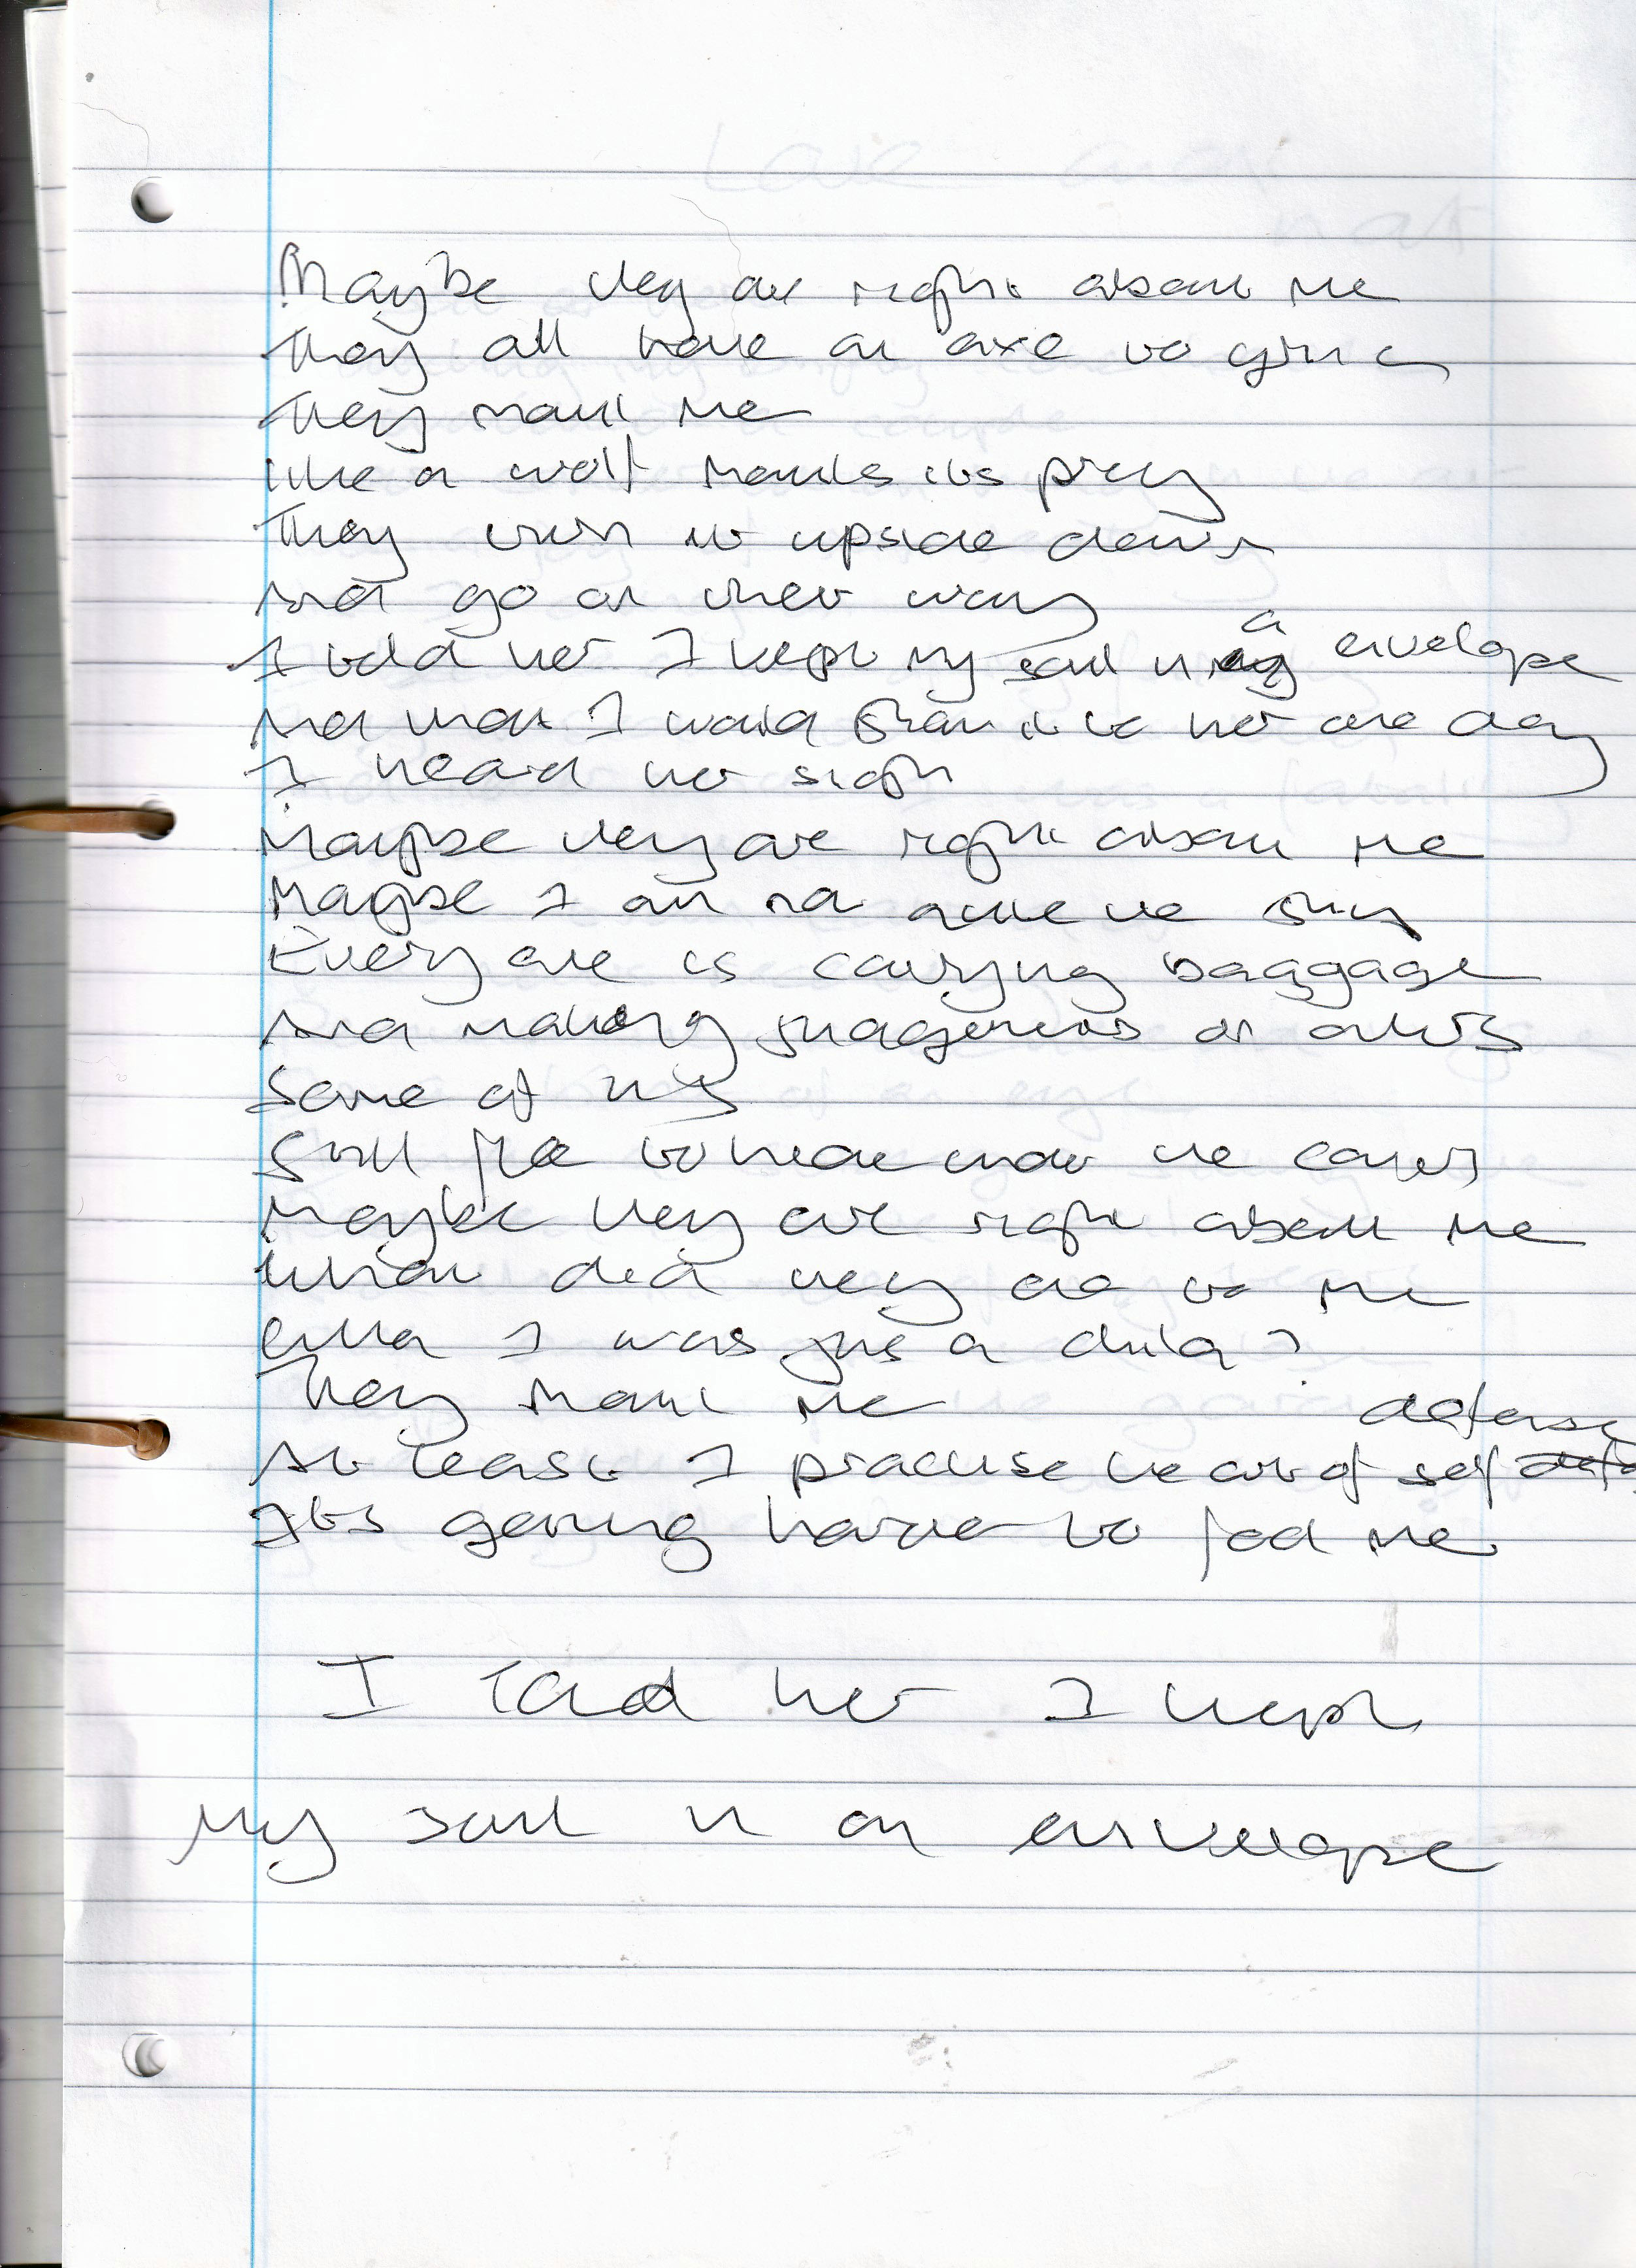 Maybe they are right about me
They all have an axe to grind
They maul me
like a wolf mauls its prey
They turn it upside down
And go on their way
I told her I kept my soul in a envelope
And that I would show it to her one day
I heard her sigh
Maybe they are right about me
Maybe I am not quite the
Every one is carrying baggage
And making judgements on others
Some of us
Still like to hear the
Maybe they are right about me
What did they do to me
when I was just a child?
They maul me
At least I practise the art of self defense
Its getting harder to fool me
I told her I kept
my soul in an envelope